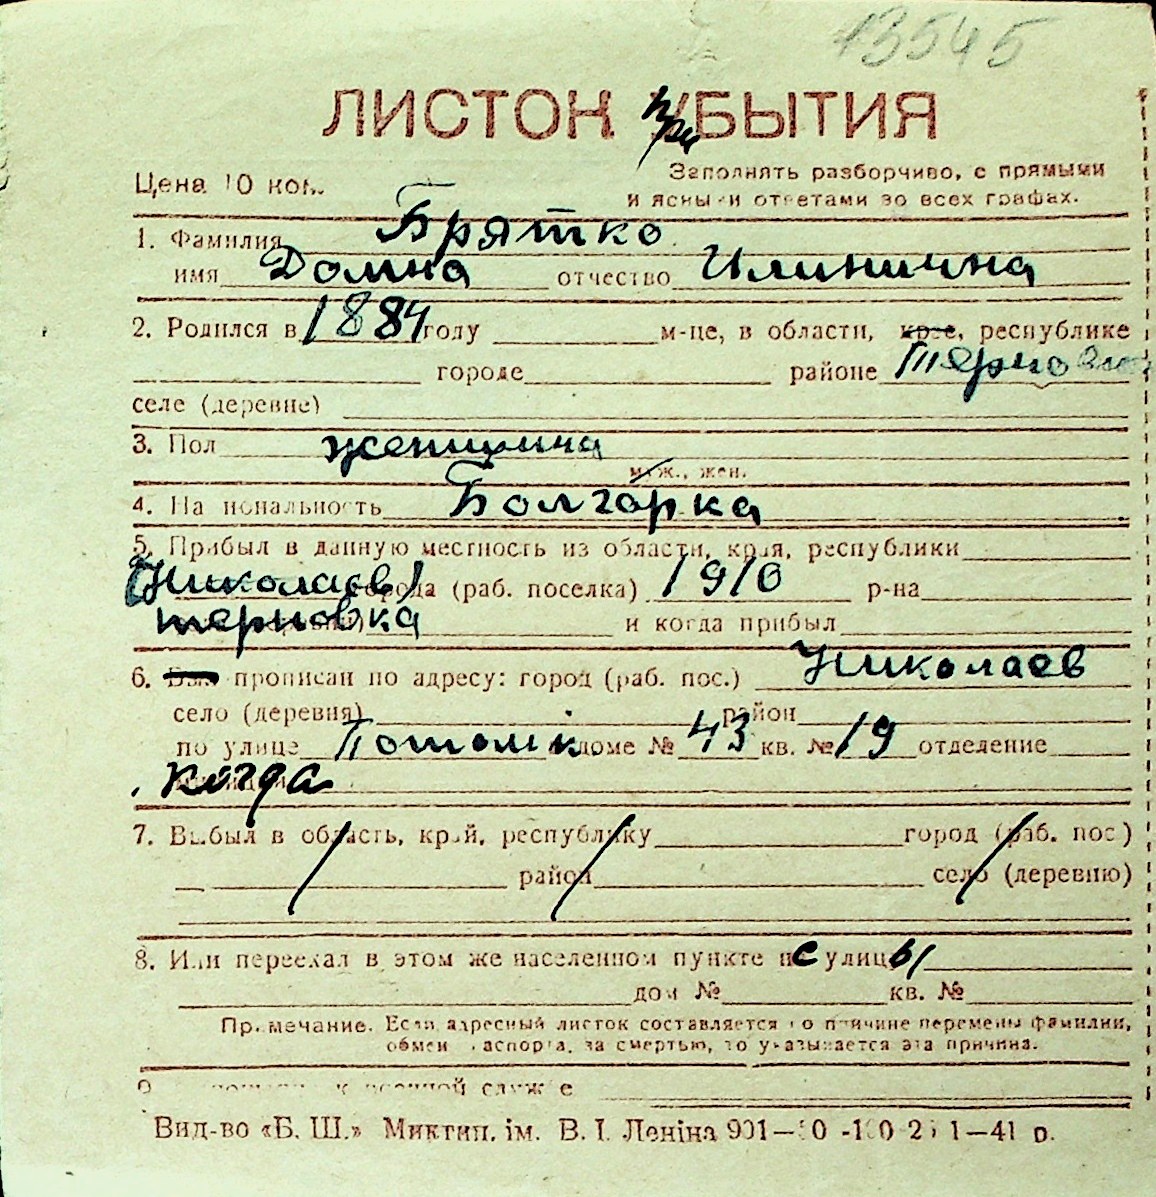 13545
ЛИСТОК при БЫТИЯ
Цена 10 коп.
Заполнять разборчиво, с прямыми
и ясными ответами во всех графах.
1. Фамилия Брятко
имя Домна отчество Илинична
2. Родился в 1884 году м-це, в области, крае, республике
городе районе
селе (деревне)
3. Пол женщина
муж., жен.
4. Национальность Болгарка
5. Прибыл в данную местность из области, края, республики
Николаев города (раб. поселка) 1910 р-на
терновка и когда прибыл
6. Был прописан по адресу: город (раб. пос.) Николаев
село (деревня) район
по улице доме № 43 кв. № 19 отделение
когда
7. Выбыл в область, край, республику город (раб. пос)
район село (деревню)
8. Или переехал в этом же населенном пункте с улицы
дом № кв. №
Примечание. Если адресный листок составляется по причине перемены фамилии,
обмен паспорта, за смертью, то указывается эта причина.
9 к военной службе
Вид-во «Б. Ш.» Миктип. ім. В. І. Леніна 901— 1—41 р.